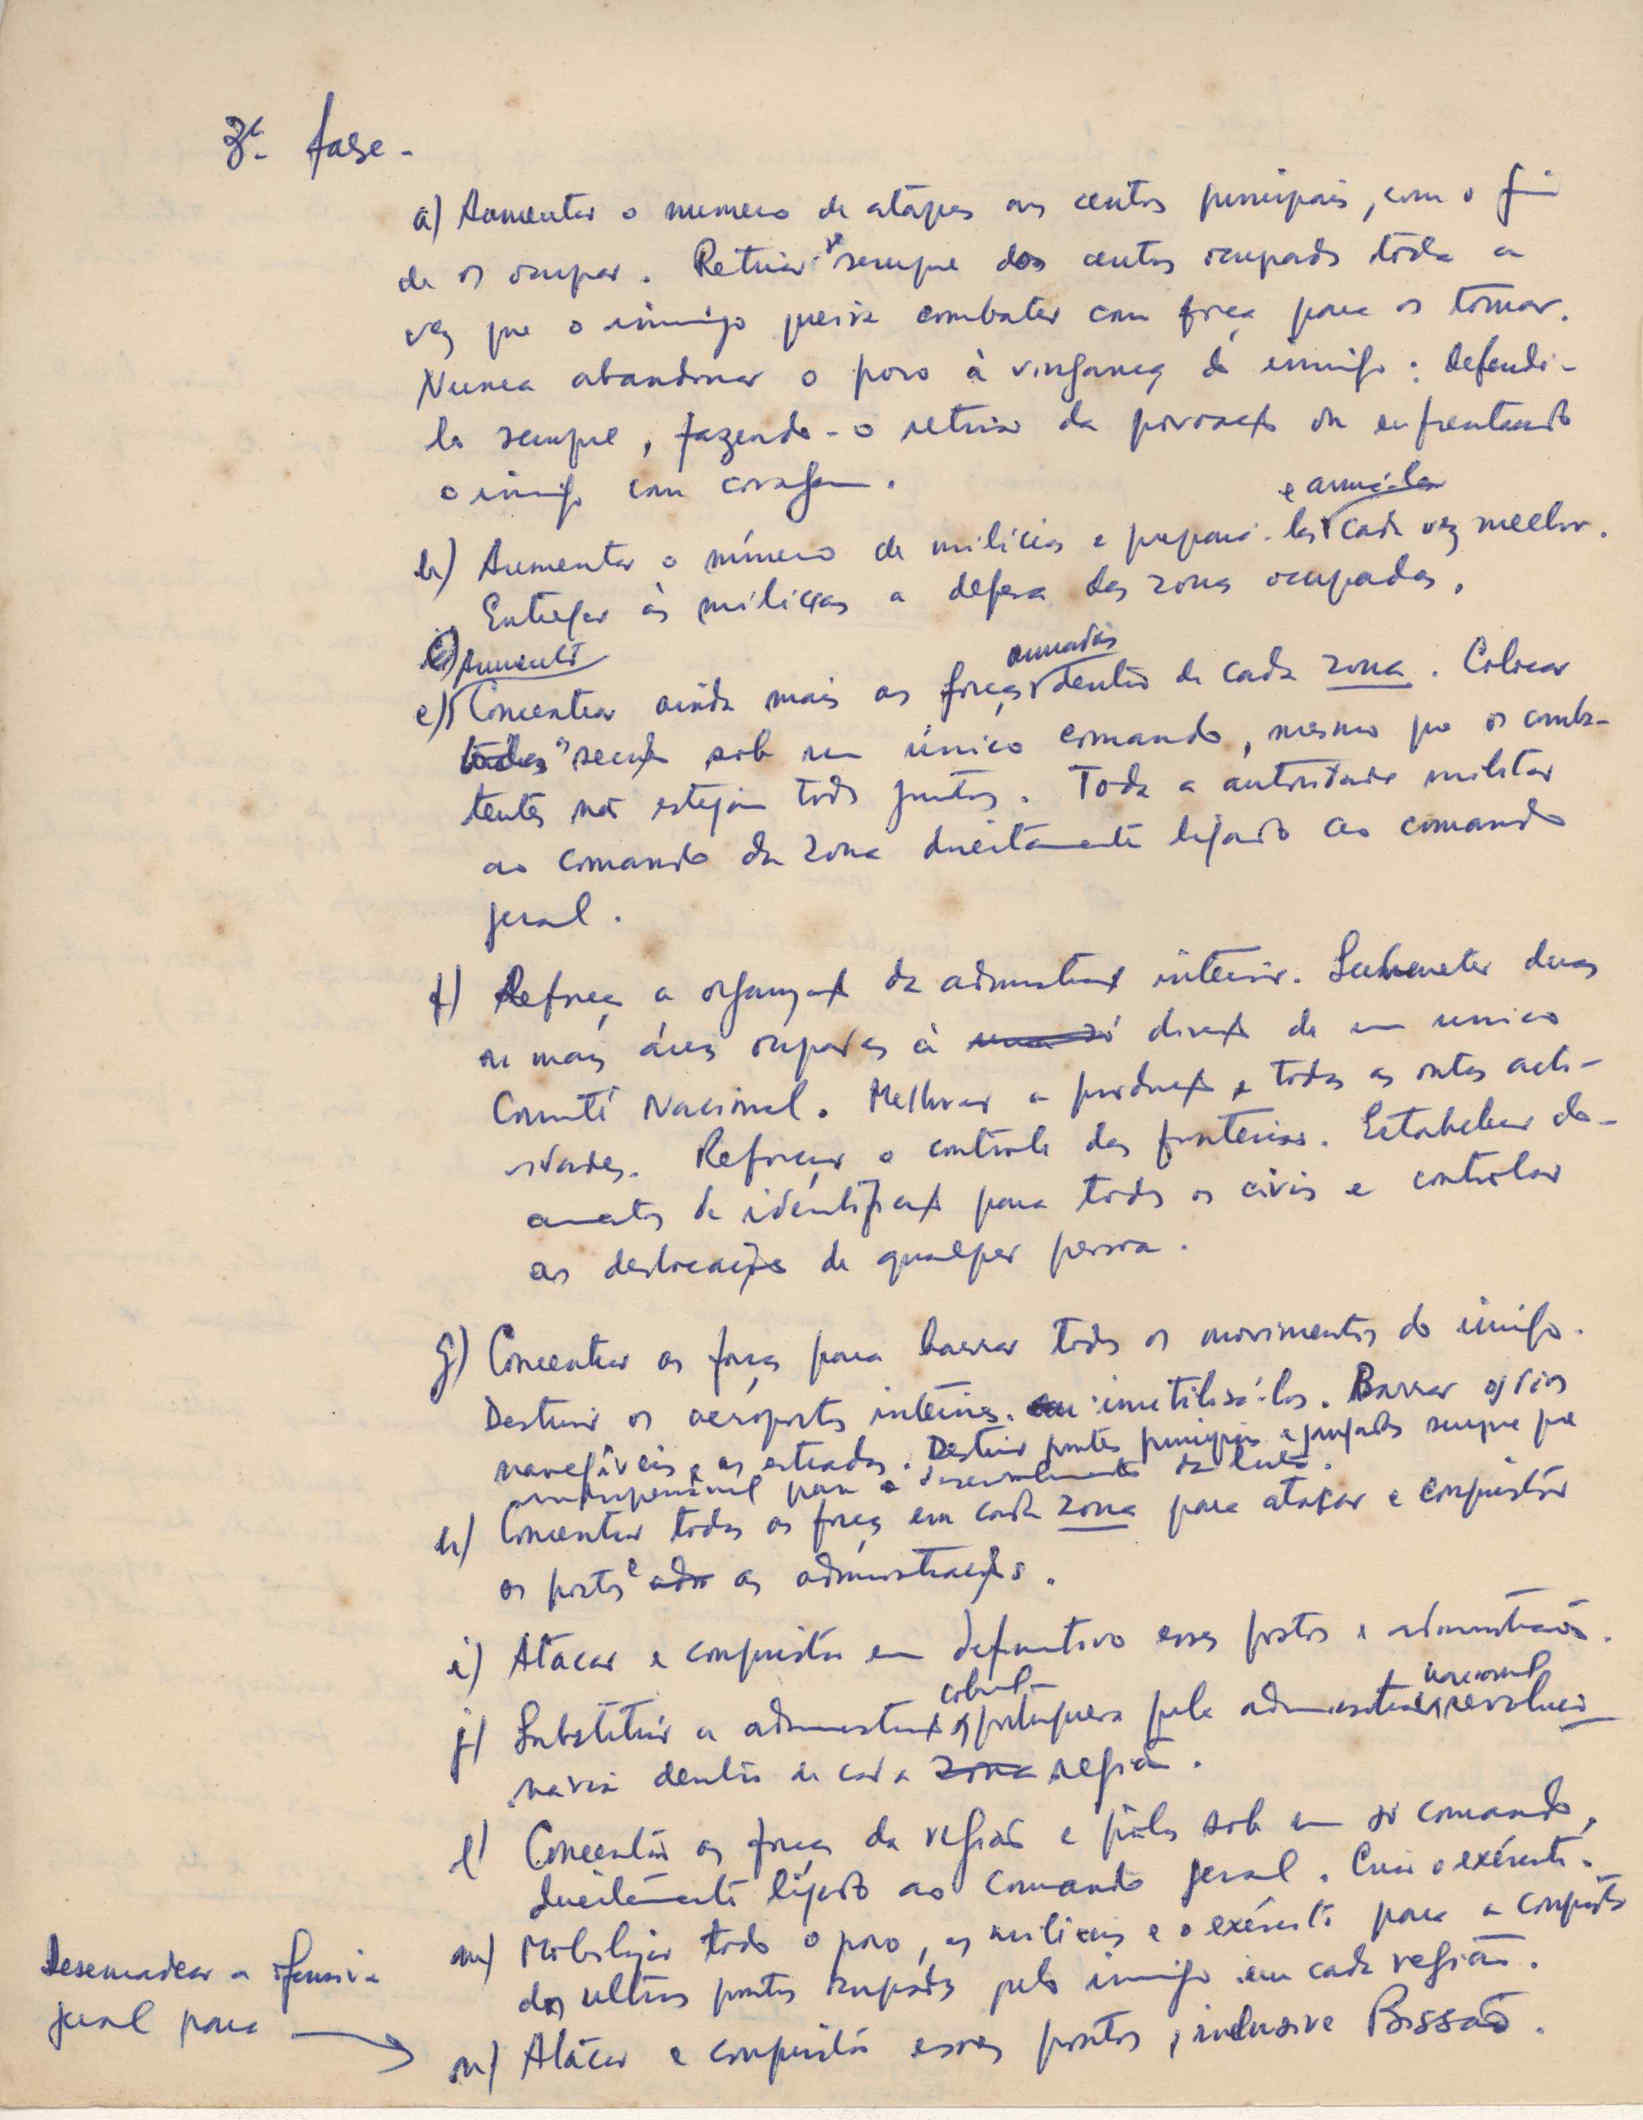 3ª fase -
a) Aumentar o numero de ataques aos centros principais, com o fim
de os ocupar. Retirar-se sempre dos centros ocupados toda a
vez que o inimigo queira combater com força para os tomar.
Nunca abandonar o povo à vingança do inimigo: defendê-
lo sempre, fazendo-o retirar da povoação ou enfrentando
o inimigo com coragem.
b) Aumentar o número de milícias e prepará-las e armá-las cada vez melhor.
Entregar às milícias a defesa das zonas ocupadas.
e) Aumentar Concentrar ainda mais as forças armadas dentro de cada zona. Colocar
todas sob um único comando, mesmo que os comba-
tentes não estejam todos juntos. Toda a autoridade militar
ao comando da zona directamente ligado ao comando
geral.
f) Reforçar a organização da administração interior. Submeter duas
ou mais áreas ocupadas à uma só direcção de um unico
Comité Nacional. Melhorar a produção e todas as outras acti-
vidades. Reforçar o controle das fronteiras. Estabelecer do-
cumentos de identificação para todos os civis e controlar
as deslocações de qualquer pessoa.
g) Concentrar as forças para barrar todos os movimentos do inimigo.
Destruir os aeroportos interiores. ou inutilizá-los. Barrar os rios
navegáveis e as estradas. Destruir pontes principais e jangadas sempre que
indispensável para o desenvolvimento da luta.
h) Concentrar todas as forças em cada zona para atacar e conquistar
os postos e as administrações.
i) Atacar e conquistar em definitivo esses postos e administrações.
j) Substituir a administração colonial portuguesa pela administração nacional revolucio
nária dentro de cada zona região.
l) Concentrar as forças da região e pô-las sob um só comando,
directamente ligado ao Comando geral. Criar o exército.
m) Mobilizar todo o povo, as milícias e o exército para a conquista
dos ultimos pontos ocupados pelo inimigo em cada região.
Desencadear a ofensiva
geral para
n) Atacar e conquistar esses pontos, inclusive Bissão.